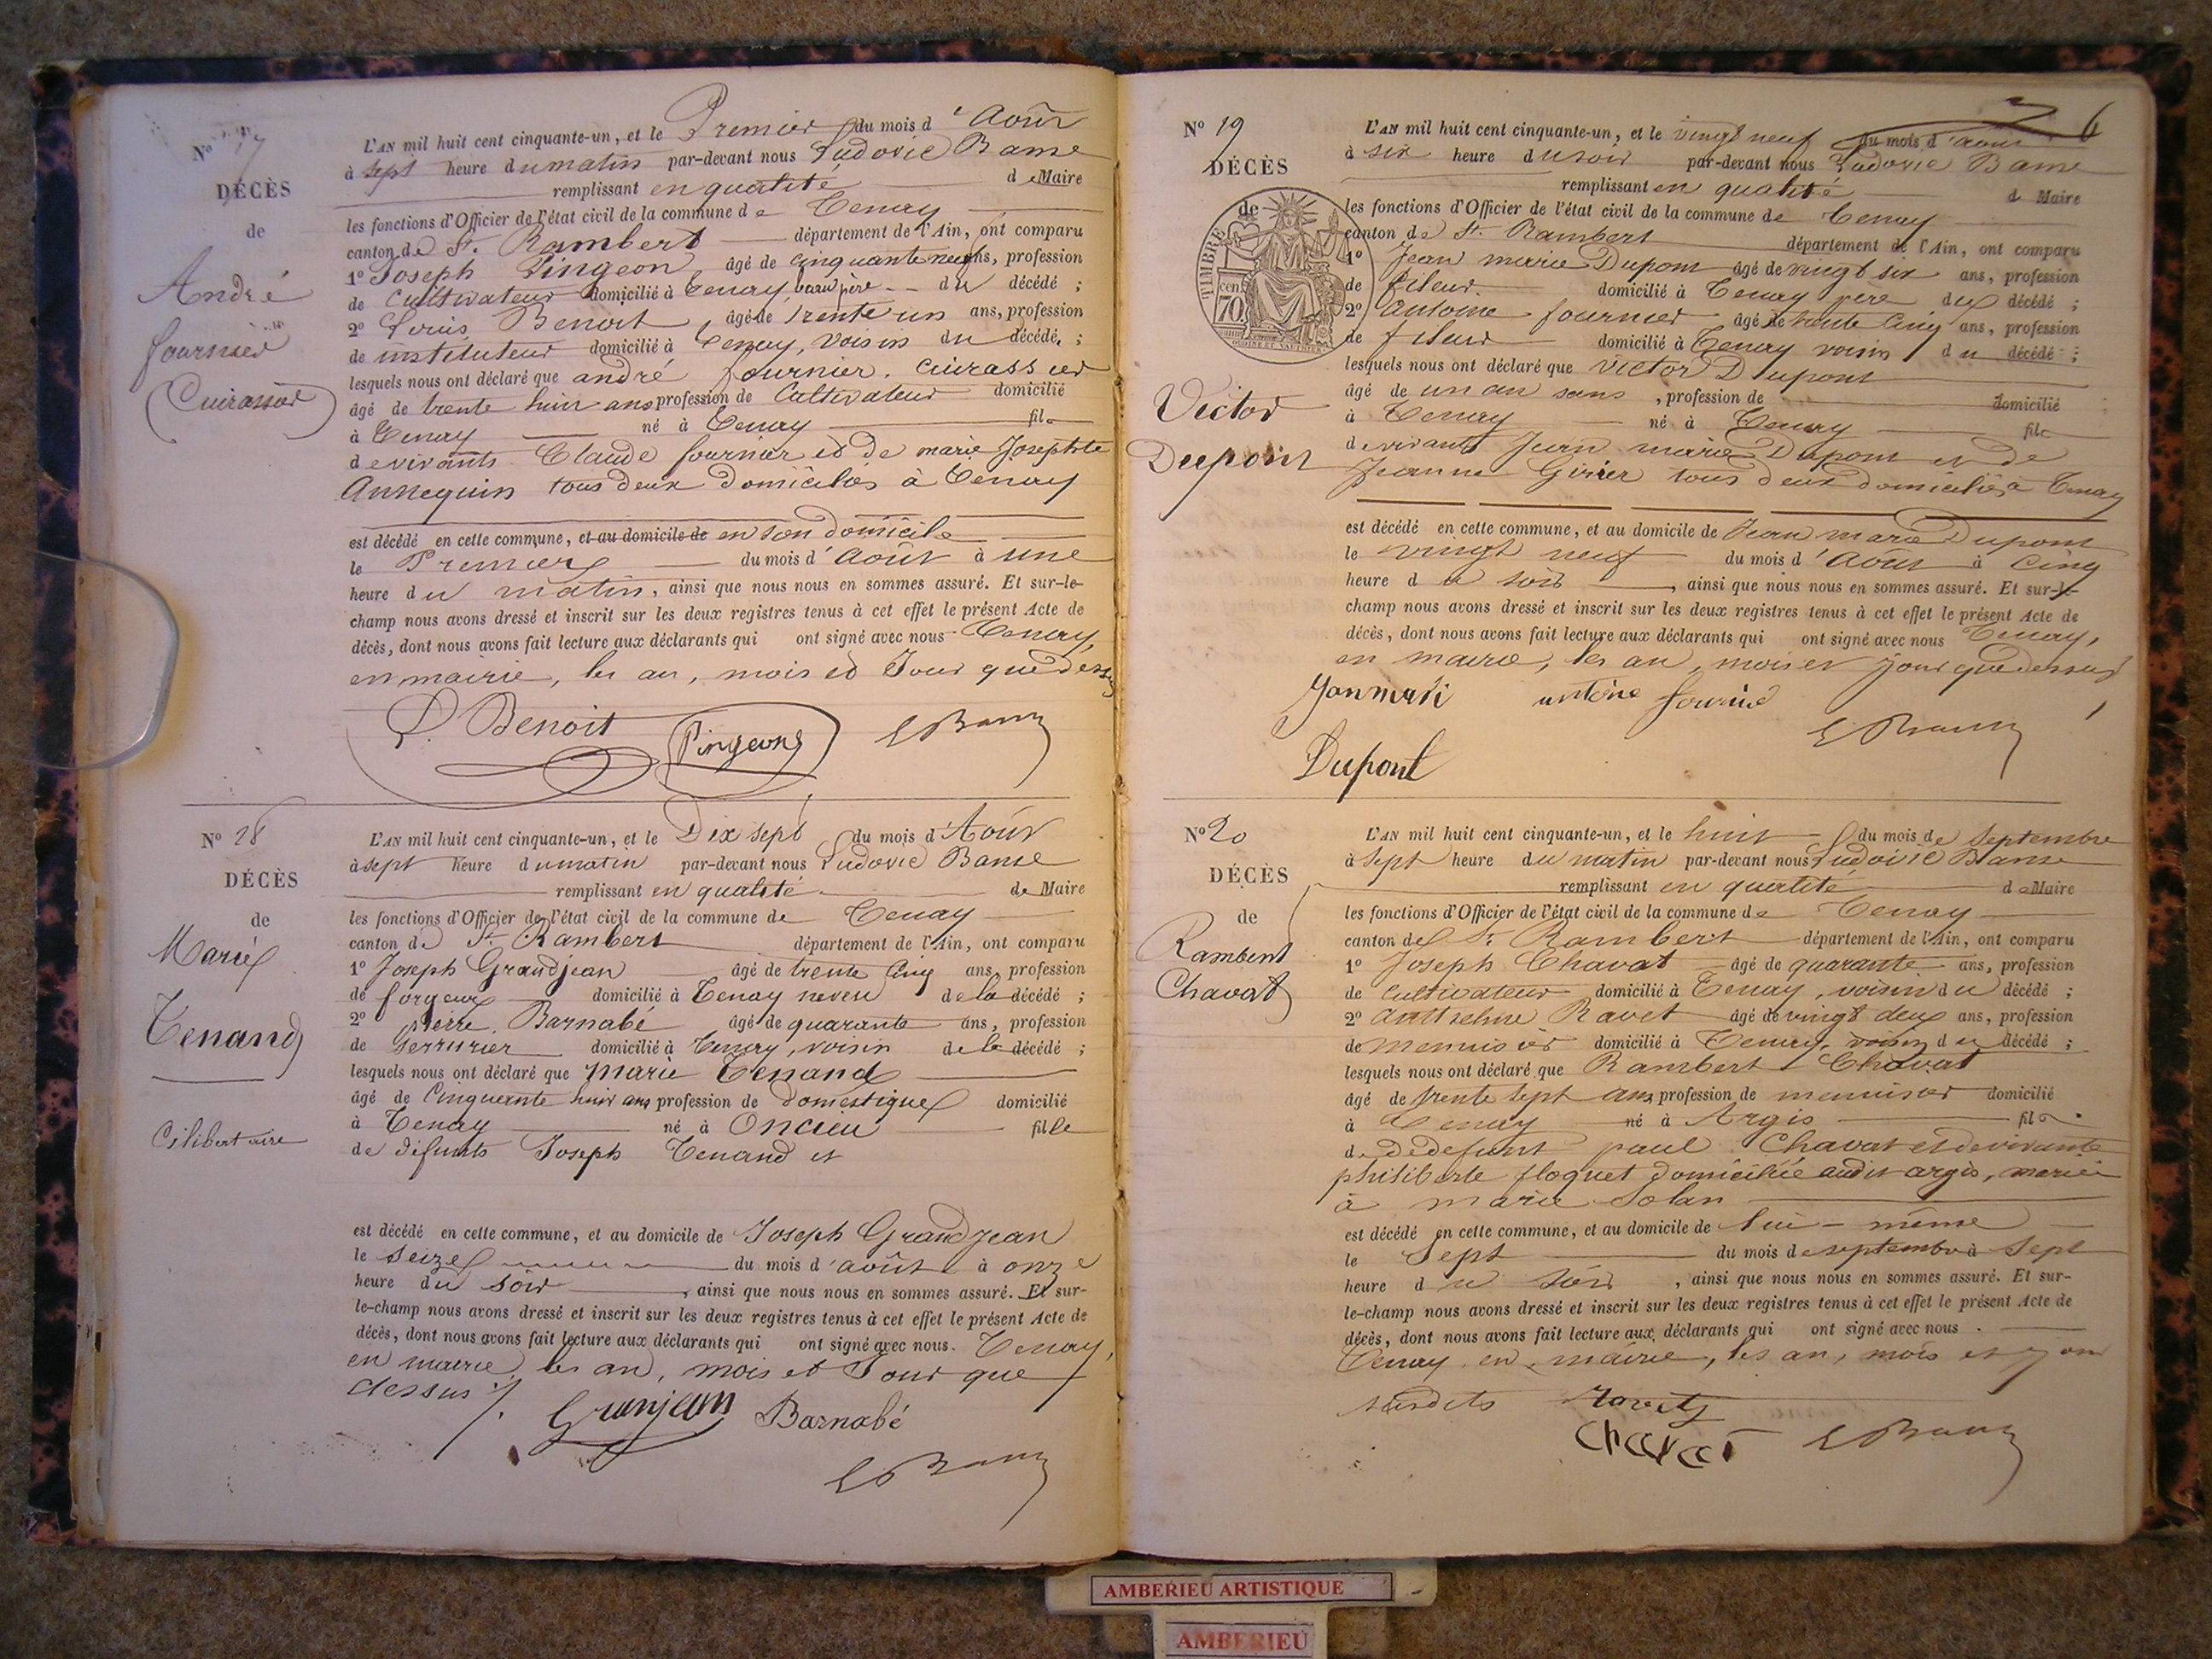 Nº 17
DÉCÈS
de
André
fournier
(Cuirassier)
L'AN mil huit cent cinquante-un, et le Premier du mois d'Août
à sept heure du matin par-devant nous Ludovic Banse
remplissant en qualité de Maire
les fonctions d'Officier de l'état civil de la commune de Tenay
canton de St. Rambert département de l'Ain, ont comparu
1º Joseph Pingeon, âgé de cinquante neuf ans, profession
de cultivateur domicilié à Tenay, beau père du décédé ;
2º Louis Benoit, âgé de trente un ans, profession
de instituteur domicilié à Tenay, voisin du décédé ;
lesquels nous ont déclaré que andré fournier. cuirassier
âgé de trente huit ans profession de Cultivateur domicilié
à Tenay né à Tenay fils
de vivants Claude fournier et de marie Josephte
Annequin tous deux domiciliés à Tenay
est décédé en cette commune, et au domicile de en son domicile
le Premier du mois d'Août à une
heure du matin, ainsi que nous nous en sommes assuré. Et sur-le-
champ nous avons dressé et inscrit sur les deux registres tenus à cet effet le présent Acte de
décès, dont nous avons fait lecture aux déclarants qui ont signé avec nous Tenay,
en mairie, les an, mois et Jour que dessus
L. Benoit Pingeon LBanse
Nº 18
DÉCÈS
de
Marie
Tenand
Célibataire
L'AN mil huit cent cinquante-un, et le Dix sept du mois d'Août
à sept heure du matin par-devant nous Ludovic Banse
remplissant en qualité de Maire
les fonctions d'Officier de l'état civil de la commune de Tenay
canton de St. Rambert département de l'Ain, ont comparu
1º Joseph Grandjean âgé de trente cinq ans, profession
de forgeur domicilié à Tenay neveu de la décédé ;
2º pierre Barnabé âgé de quarante ans, profession
de serrurier domicilié à Tenay, voisin de la décédé ;
lesquels nous ont déclaré que Marie Tenand
âgé de Cinquante huit ans profession de domestique domicilié
à Tenay né à Oncieu fille
de défunts Joseph Tenand et
est décédé en cette commune, et au domicile de Joseph Grandjean
le seize du mois d'août à onze
heure du soir, ainsi que nous nous en sommes assuré. Et sur-
le-champ nous avons dressé et inscrit sur les deux registres tenus à cet effet le présent Acte de
décès, dont nous avons fait lecture aux déclarants qui ont signé avec nous. Tenay,
en mairie, les an, mois et Jour que
dessus
Granjean Barnabé
LBanse
6
Nº 19
DÉCÈS
de
TIMBRE
70 cen
Victor
Dupont
L'AN mil huit cent cinquante-un, et le vingt neuf du mois d'août
à six heure du soir par-devant nous Ludovic Banse
remplissant en qualité de Maire
les fonctions d'Officier de l'état civil de la commune de Tenay
canton de St. Rambert département de l'Ain, ont comparu
1º Jean marie Dupont âgé de vingt six ans, profession
de fileur domicilié à Tenay père du décédé ;
2º antoine fournier âgé de trente cinq ans, profession
de fileur domicilié à Tenay voisin du décédé ;
lesquels nous ont déclaré que Victor Dupont
âgé de un an sans , profession de domicilié
à Tenay né à Tenay fils
de vivants Jean marie Dupont et de
Jeanne Girier tous deux domiciliés à Tenay
est décédé en cette commune, et au domicile de Jean marie Dupont
le vingt neuf du mois d'Août à cinq
heure du soir, ainsi que nous nous en sommes assuré. Et sur-le-
champ nous avons dressé et inscrit sur les deux registres tenus à cet effet le présent Acte de
décès, dont nous avons fait lecture aux déclarants qui ont signé avec nous Tenay,
en mairie, les an, mois et jour que dessus
Janmari antoine fournié
LBanse
Dupont
Nº 20
DÉCÈS
de
Rambert
Chavat
L'AN mil huit cent cinquante-un, et le huit du mois de Septembre
à Sept heure du matin par-devant nous Ludovic Banse
remplissant en qualité de Maire
les fonctions d'Officier de l'état civil de la commune de Tenay
canton de St. Rambert département de l'Ain, ont comparu
1º Joseph Chavat âgé de quarante ans, profession
de cultivateur domicilié à Tenay, voisin du décédé ;
2º anthelme Ravet âgé de vingt deux ans, profession
de menuisier domicilié à Tenay, voisin du décédé ;
lesquels nous ont déclaré que Rambert Chavat
âgé de trente sept ans, profession de menuisier domicilié
à Tenay né à Argis fils
de défunt paul Chavat et de vivante
philiberte floquet domiciliée audit argis, marié
à marie Solan
est décédé en cette commune, et au domicile de lui-même
le Sept du mois de septembre à Sept
heure du soir, ainsi que nous nous en sommes assuré. Et sur-
le-champ nous avons dressé et inscrit sur les deux registres tenus à cet effet le présent Acte de
décès, dont nous avons fait lecture aux déclarants qui ont signé avec nous.
Tenay, en mairie, les an, mois et jour
susdits Ravet
Chavat LBanse
AMBERIEU ARTISTIQUE
AMBERIEU